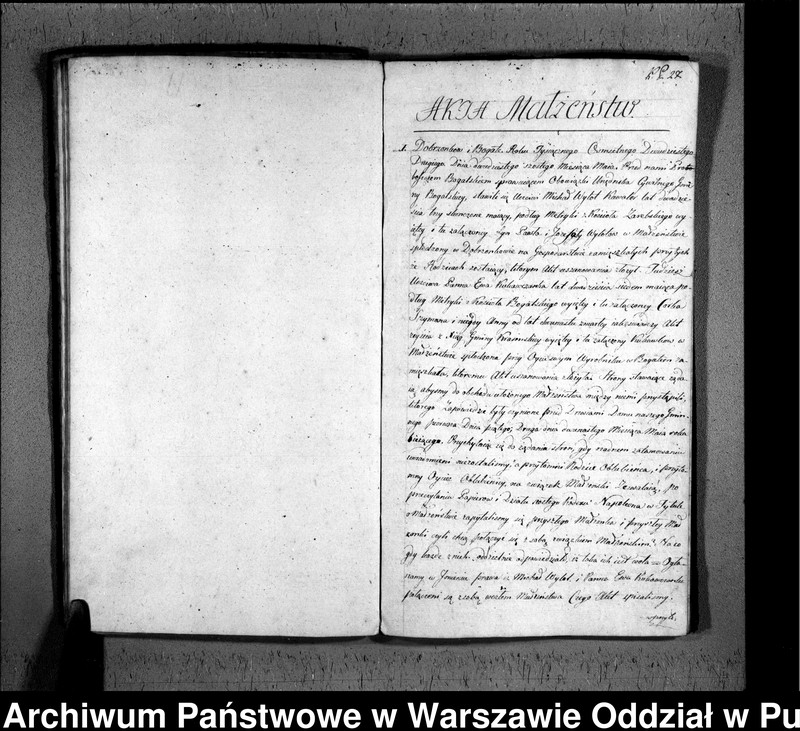 27
AKTA Małżeństw
1. Dobrzankow i Bogate. Roku Tysiącznego Osmsetnego Dwudziestego
Drugiego Dnia dwudziestego szostego Miesiąca Maia. Przed nami
Bogatskiem sprawuiącem Obowiązki Urzędnika Cywilnego Gmi
ny Bogatskiey, stawił się Uczciwy Michał Wylot Kawaler lat dwadzie
scia trzy skonczone maiący, podług Metryki z Kościoła Zarębskiego wy
iętey i tu załączoney Syn Pawła i Jozefaty Wylotow w Małżeństwie
spłodzony w Dobrzankowie na Gospodarstwie zamieszkałych przy tychże
Rodzicach zostaiący, ktorym Akt uszanowania złożył. Tudzież
Uczciwa Panna Ewa lat dwadzieścia siedem maiąca po
dług Metryki z Kościoła Bogatskiego wyiętey i tu załączoney Corka
Szymana i niegdy Anny od lat zmarłey Akt
zeyścia z Xiąg Gminy wyięty i tu załączony
Małżeństwie spłodzona przy Oycu swym Wyrobniku w Bogatem za
mieszkała, ktoremu Akt uszanowania złożyła. Strony stawaiące żąda
ią abyśmy do obchodu ułożonego Małżeństwa między niemi przystąpili
ktorego Zapowiedzi były czynione przed Drzwiami Domu naszego Gmin
nego pierwsza Dnia piątego, Druga dnia dwunastego Miesiąca Maia roku
bieżącego. Przychylaiąc się do żądania stron, gdy o żadnem zatamowaniu
uwiadomieni niezostaliśmy, a przytomni Rodzice Oblubieńca, i przyto
mny Oyciec Oblubienicy, na związek Małżeński zezwalaią, po
przeczytaniu Papierow i Działu szostego Kodexu Napoleona w Tytule
o Małżeństwie zapytaliśmy się przyszłego Małżonka i przyszłey Mał
żonki czyli chcą połączyć się z sobą związkiem Małżeńskim? Na co
gdy każde z nich oddzielnie odpowiedziało, iż taka ich iest wola = Ogła
szamy w Imieniu prawa iż Michał Wylot i Panna Ewa
połączeni są z sobą węzłem Małżeństwa Czego Akt spisaliśmy.
Archiwum Państwowe w Warszawie Oddział w Pu